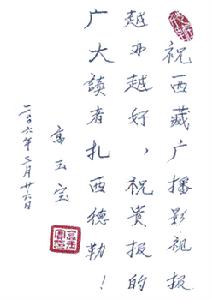 祝西藏广播影视报
越办越好，祝贵报的
广大讀者扎西德勒！
高玉宝
二〇〇六年三月廿六日